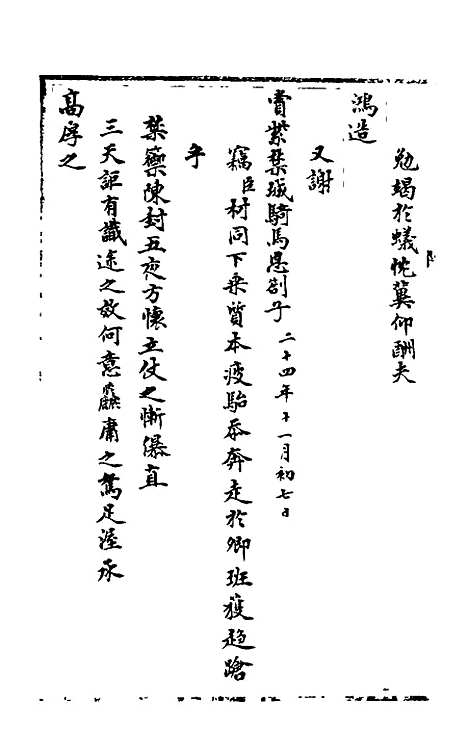 勉竭於蟻忱冀仰酬夫
鴻造
又謝
賞紫禁城騎馬恩劄子二十四年十一月初七日
竊臣材同下乘質本疲駘忝奔走於卿班獲趨蹌
乎
禁籞陳封五夜方懷立仗之慚瀑直
三天詎有識途之效何意麤庸之駑足渥承
高厚之